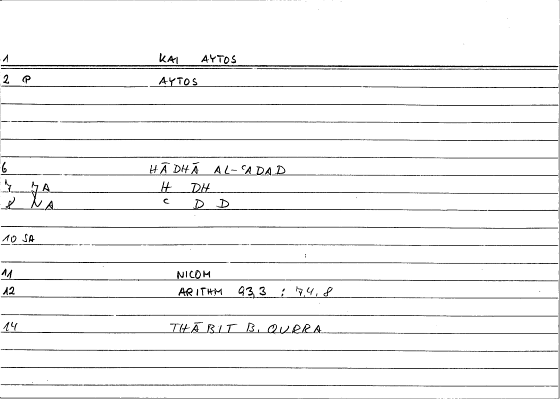 1 KAI AYTOS
2 P AYTOS
6 HĀDHĀ AL-ʿADAD
7 7A H DH
8 NA ʿ D D
10 SA
11 NICOM
12 ARITHM 93,3 : 74.8
14 THĀBIT B. QURRA